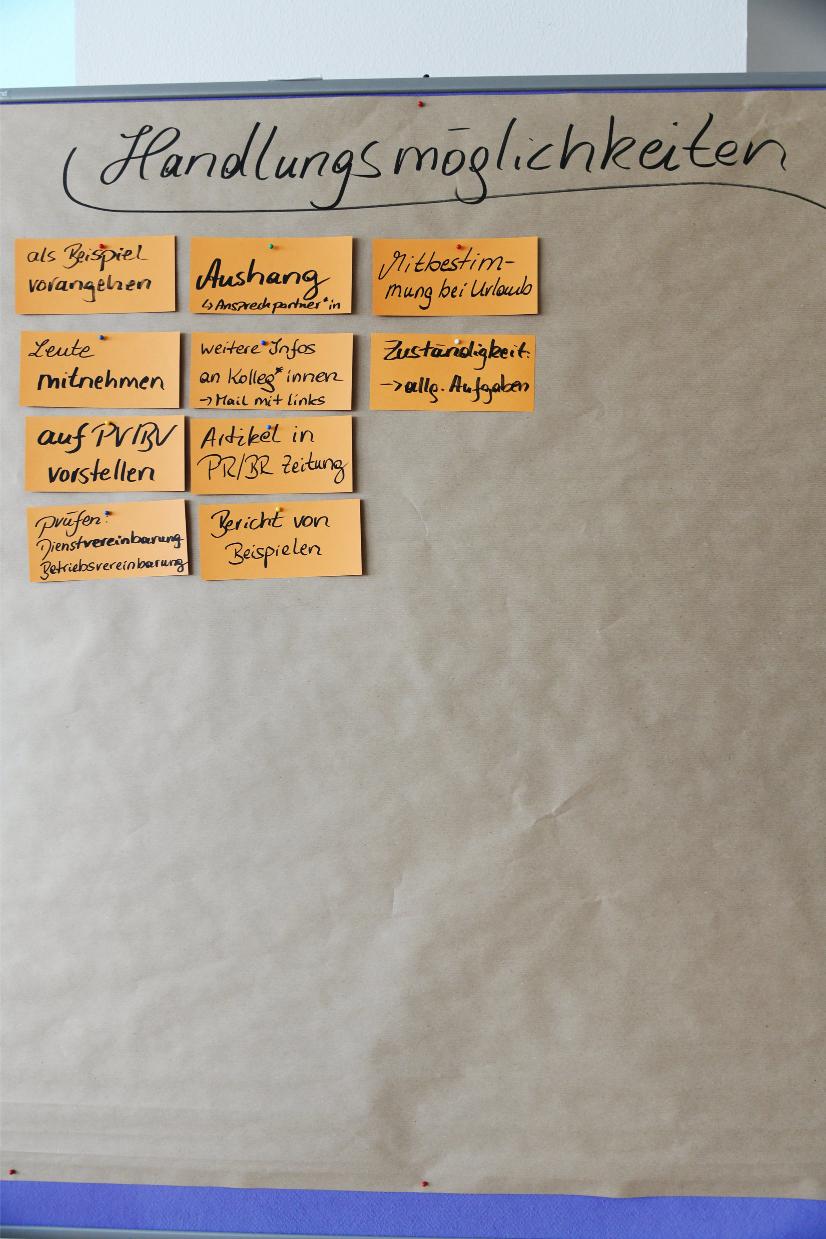 Handlungsmöglichkeiten
als Beispiel
vorangehen
Leute
mitnehmen
auf PV/BV
vorstellen
prüfen:
Dienstvereinbarung
Betriebsvereinbarung
Aushang
↳ Ansprechpartner*in
weitere Infos
an Kolleg*innen
→ Mail mit links
Artikel in
PR/BR Zeitung
Bericht von
Beispielen
Mitbestim-
mung bei Urlaub
Zuständigkeit:
→ allg. Aufgaben